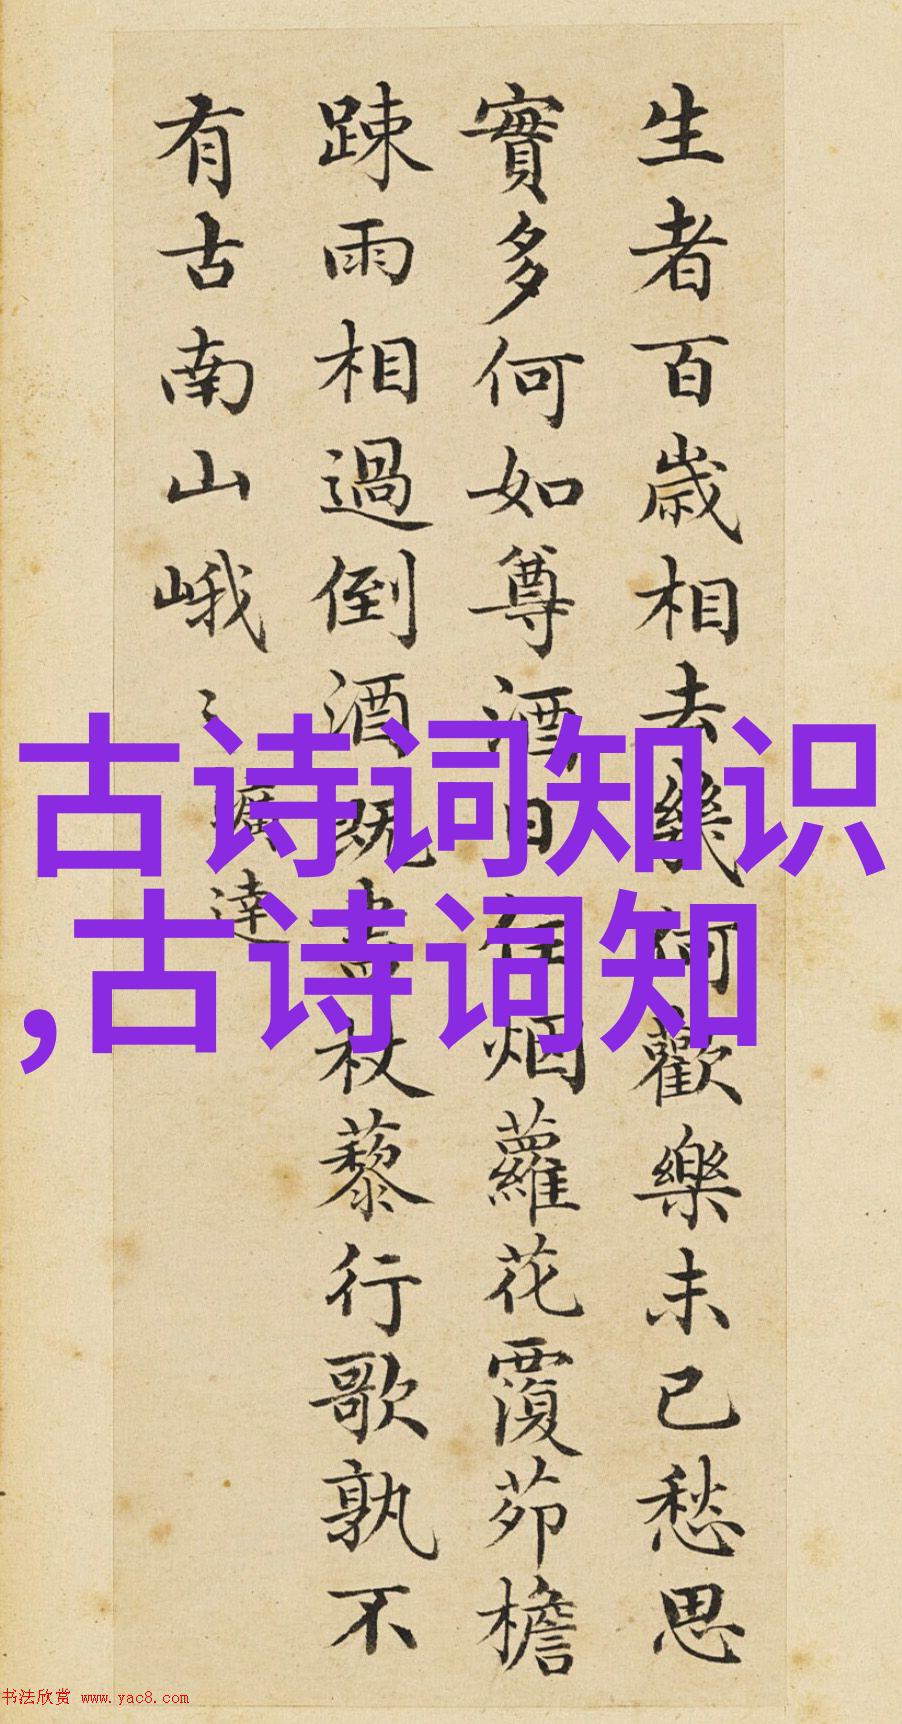 生者百歳相去幾何歡樂未已愁思
實多何如尊酒日往烟蘿花覆茆檐
踈雨相過倒酒既盡杖藜行歌孰不
有古南山峨〻
曠達
古诗词知识
,古诗词知
书法欣赏 www.yac8.com